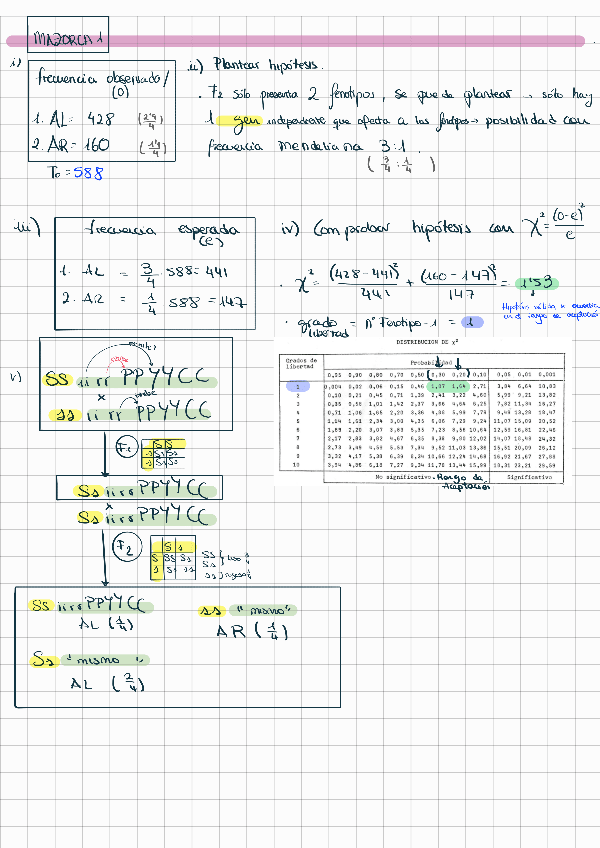 MAZORCA 1
i)
frecuencia observada/
(O)
1. AL = 428 (2'9/4)
2. AR = 160 (1'1/4)
To = 588
ii) Plantear hipótesis.
· F2 sólo presenta 2 fenotipos, se puede plantear → sólo hay
1 gen independiente que afecta a los fenotipos → posibilidad con
frecuencia mendeliana 3:1.
(3/4 : 1/4)
iii)
frecuencia esperada
(e)
1. AL = 3/4 · 588 = 441
2. AR = 1/4 588 = 147
iv) Comprobar hipótesis con X² = (o-e)²/e
· X² = (428-441)²/441 + (160-147)²/147 = 1'53
Hipótesis válida
· grado libertad = nº Fenotipo - 1 = 1
DISTRIBUCION DE X²
Grados de libertad
Probabilidad
0,95 0,90 0,80 0,70 0,50 0,30 0,20 0,10 0,05 0,01 0,001
1 0,004 0,02 0,06 0,15 0,46 1,07 1,64 2,71 3,84 6,64 10,83
2 0,10 0,21 0,45 0,71 1,39 2,41 3,22 4,60 5,99 9,21 13,82
3 0,35 0,58 1,01 1,42 2,37 3,66 4,64 6,25 7,82 11,34 16,27
4 0,71 1,06 1,65 2,20 3,36 4,88 5,99 7,78 9,49 13,28 18,47
5 1,14 1,61 2,34 3,00 4,35 6,06 7,29 9,24 11,07 15,09 20,52
6 1,63 2,20 3,07 3,83 5,35 7,23 8,56 10,64 12,59 16,81 22,46
7 2,17 2,83 3,82 4,67 6,35 8,38 9,80 12,02 14,07 18,48 24,32
8 2,73 3,49 4,59 5,53 7,34 9,52 11,03 13,36 15,51 20,09 26,12
9 3,32 4,17 5,38 6,39 8,34 10,66 12,24 14,68 16,92 21,67 27,88
10 3,94 4,86 6,18 7,27 9,34 11,78 13,44 15,99 18,31 23,21 29,59
No significativo. Rango de Aceptación
Significativo
v)
SS ii rr PPYYCC
x
ss ii rr PPYYCC
F1
Ss iirr PPYYCC
x
Ss iirr PPYYCC
F2
SS iirr PPYYCC
AL (1/4)
ss "mismo"
AR (1/4)
Ss "mismo"
AL (2/4)